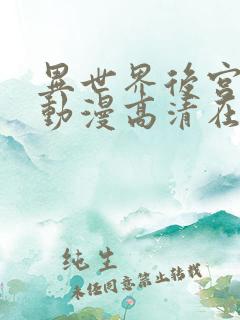 異世界後宮
動漫高清在
純生
未任同意禁止转载